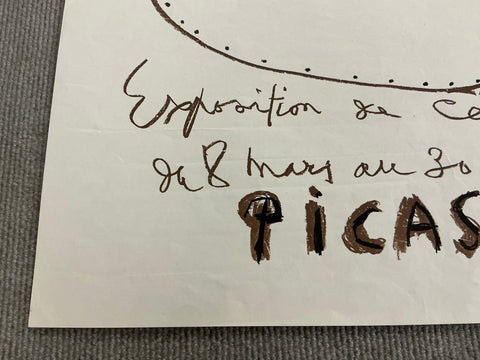 Exposition de Cé
du 8 Mars au 30
PICAS